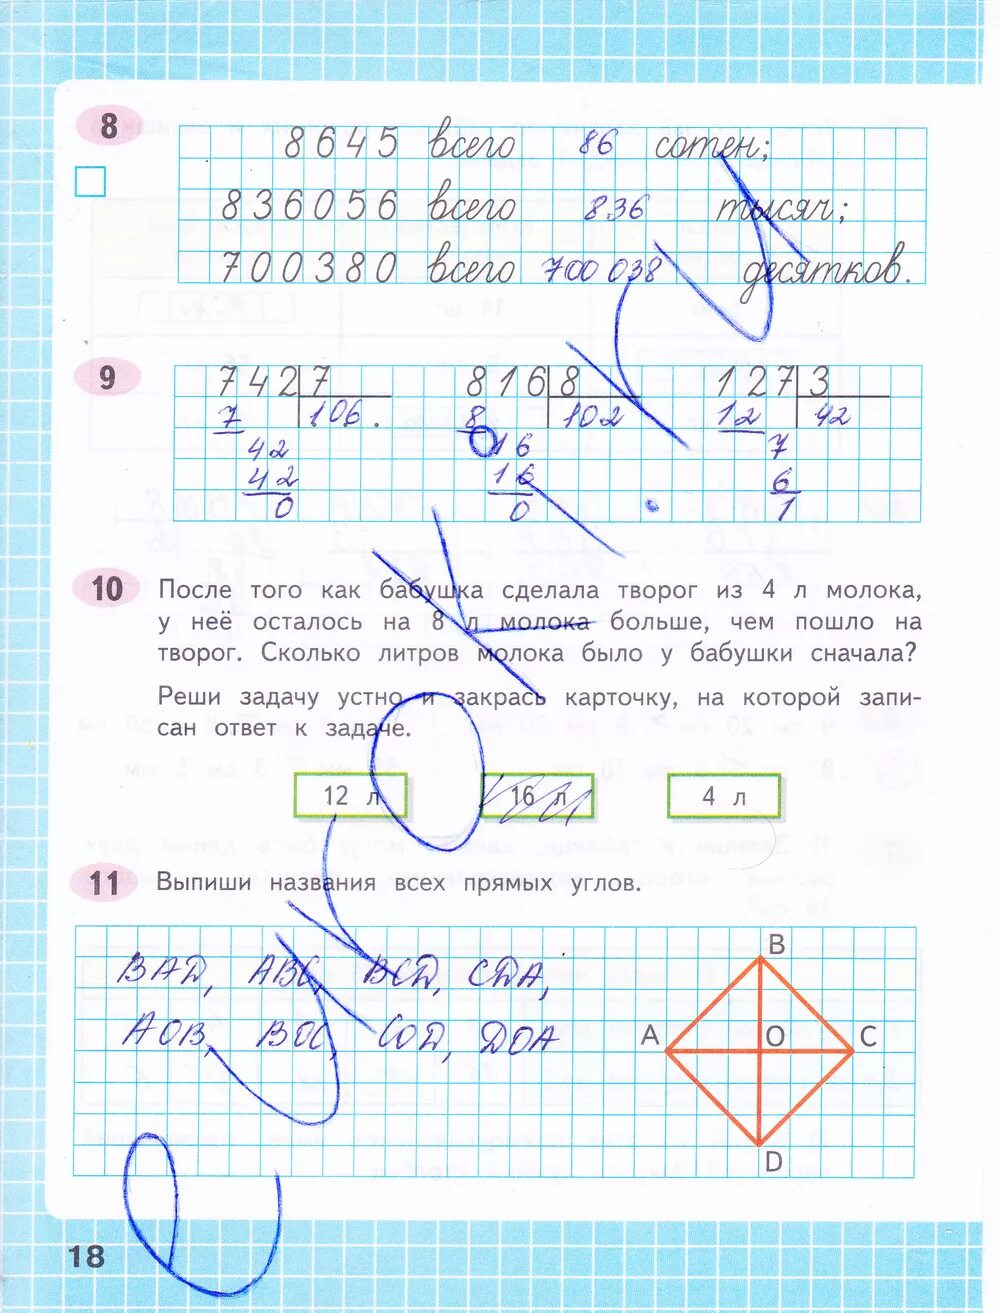 8
8645 всего 86 сотен;
836056 всего 836 тысяч;
700380 всего 700 038 десятков.
9
742 7 816 8 127 3
7 106. 8 102 12 42
42 016 7
42 16 6
0 0 1
10 После того как бабушка сделала творог из 4 л молока,
у неё осталось на 8 л молока больше, чем пошло на
творог. Сколько литров молока было у бабушки сначала?
Реши задачу устно и закрась карточку, на которой запи-
сан ответ к задаче.
12 л 16 л 4 л
11 Выпиши названия всех прямых углов.
BAD, ABC, BCD, CDA,
AOB, BOC, COD, DOA
B
A O C
D
18